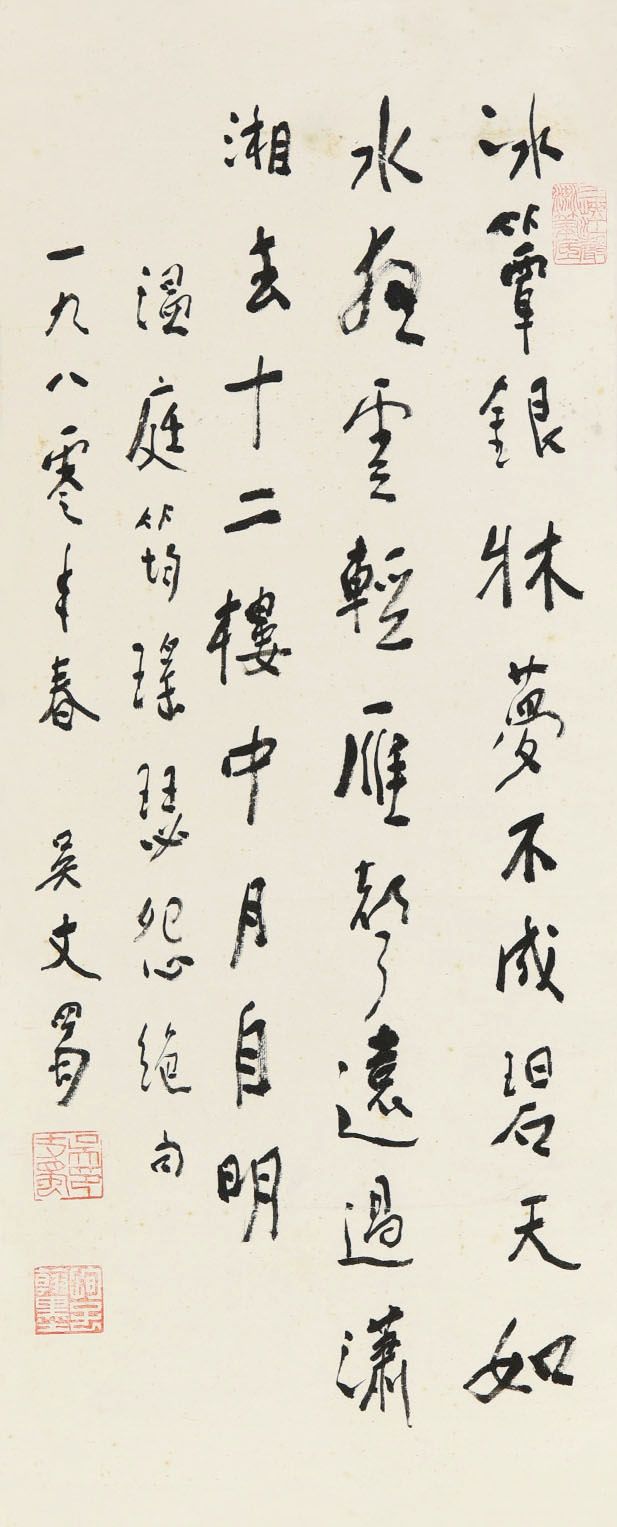 冰簟銀牀夢不成碧天如
水夜雲輕雁聲遠過瀟
湘去十二樓中月自明
溫庭筠瑤瑟怨絶句
一九八零年春 吳丈蜀
吳印丈蜀